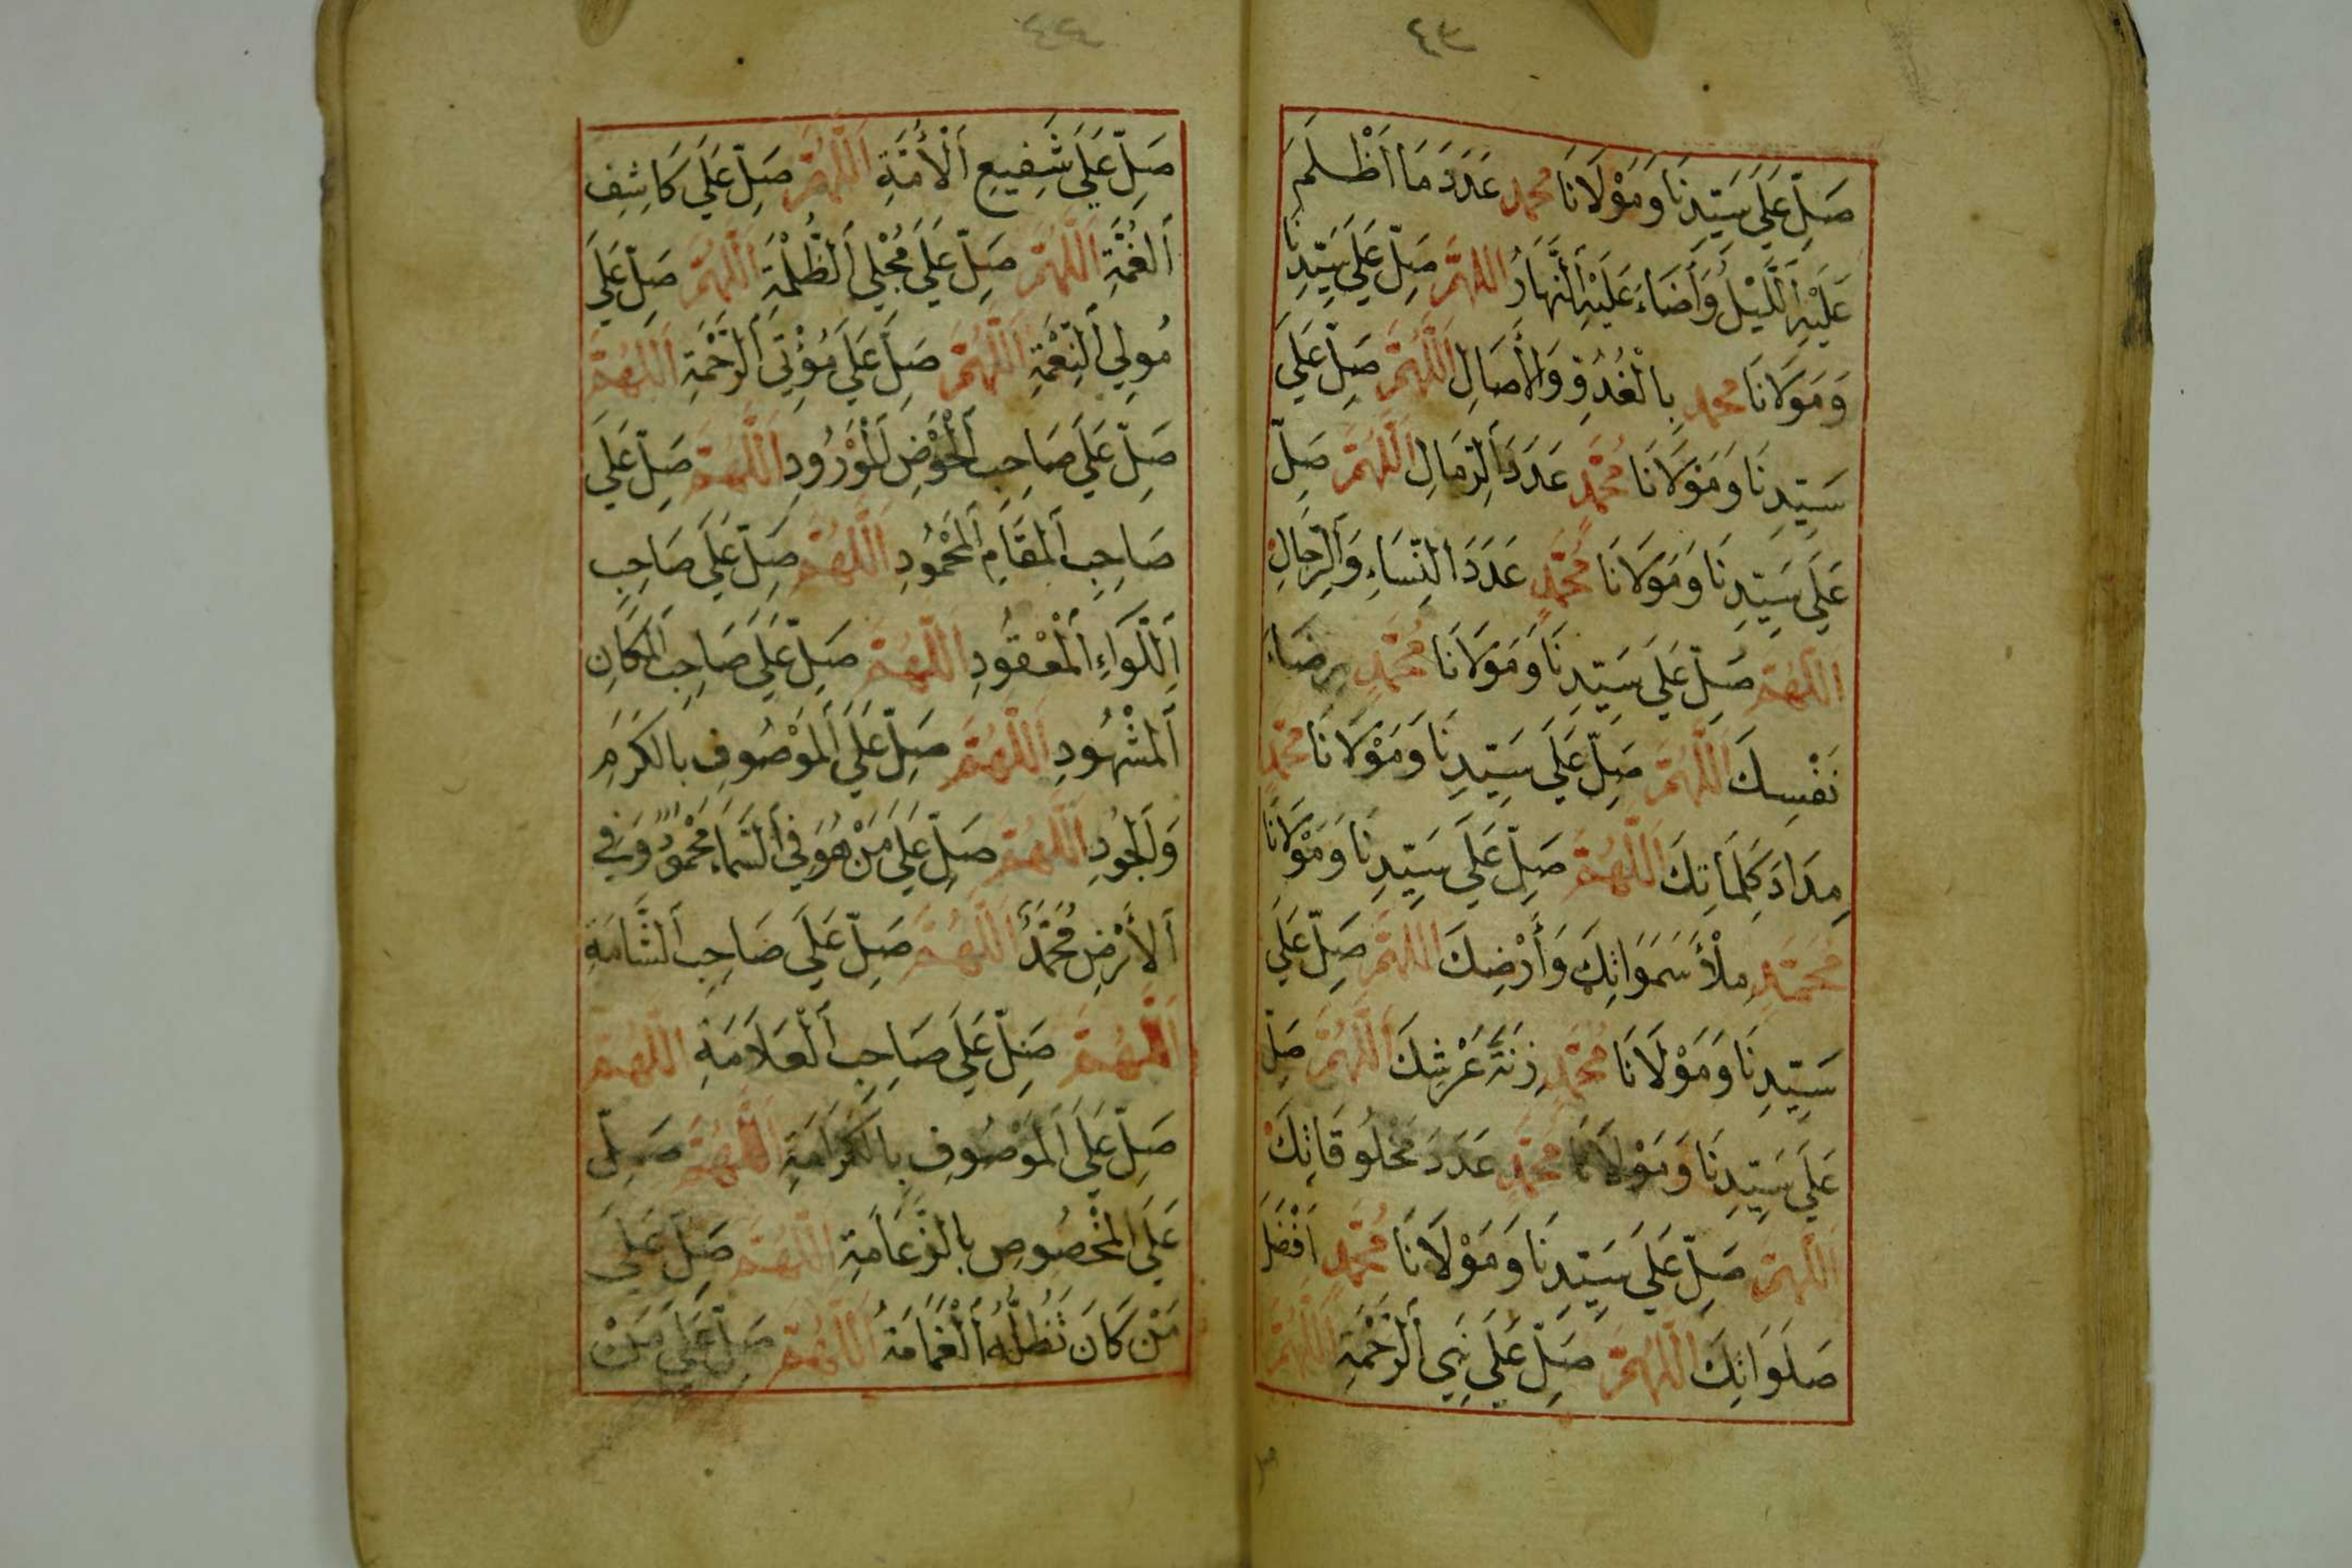 ٤٣
صَلِّ عَلَى سَيِّدِنَا وَمَوْلَانَا محمد عَدَدَ مَا أَظْلَمَ
عَلَيْهِ اَللَّيْلُ وَأَضَاءَ عَلَيْهِ اَلنَّهَارُ اللهُمَّ صَلِّ عَلَى سَيِّدِنَا
وَمَوْلَانَا محمد بِالْغُدُوِّ وَالْأَصَالِ اَللَّهُمَّ صَلِّ عَلَى
سَيِّدِنَا وَمَوْلَانَا مُحَمَّدٍ عَدَدَ اَلرِّمَالِ اَللَّهُمَّ صَلِّ
عَلَى سَيِّدِنَا وَمَوْلَانَا مُحَمَّدٍ عَدَدَ اَلنِّسَاءِ وَاَلرِّجَالِ
اَللَّهُمَّ صَلِّ عَلَى سَيِّدِنَا وَمَوْلَانَا مُحَمَّدٍ رِضَاءَ
نَفْسِكَ اَللَّهُمَّ صَلِّ عَلَى سَيِّدِنَا وَمَوْلَانَا محمدٍ
مِدَادَ كَلِمَاتِكَ اَللَّهُمَّ صَلِّ عَلَى سَيِّدِنَا وَمَوْلَانَا
مُحَمَّدٍ مِلْأَ سَمَوَاتِكَ وَأَرْضِكَ اللهُمَّ صَلِّ عَلَى
سَيِّدِنَا وَمَوْلَانَا مُحَمَّدٍ زِنَةَ عَرْشِكَ اَللَّهُمَّ صَلِّ
عَلَى سَيِّدِنَا وَمَوْلَانَا مُحَمَّدٍ عَدَدَ مَخْلُوقَاتِكَ
اَللَّهُمَّ صَلِّ عَلَى سَيِّدِنَا وَمَوْلَانَا مُحَمَّدٍ أَفْضَلَ
صَلَوَاتِكَ اَللَّهُمَّ صَلِّ عَلَى نَبِيِ اَلرَّحْمَةِ اَللَّهُمَّ
صل
صَلِّ عَلَى شَفِيعِ اَلْأُمَّةِ اَللَّهُمَّ صَلِّ عَلَى كَاشِفِ
اَلغُمَّةِ اَللَّهُمَّ صَلِّ عَلَى مُجْلِي اَلظُّلْمَةِ اَللَّهُمَّ صَلِّ عَلَى
مُولِي اَلنِّعْمَةِ اَللَّهُمَّ صَلِّ عَلَى مُؤْتِي اَلرَّحْمَةِ اَللَّهُمَّ
صَلِّ عَلَى صَاحِبِ اَلْحَوْضِ اَلْمَوْرُودِ اَللَّهُمَّ صَلِّ عَلَى
صَاحِبِ اَلمَقَامِ اَلمَحْمُودِ اَللَّهُمَّ صَلِّ عَلَى صَاحِبِ
اَللِّوَآءِ اَلْمَعْقُودِ اَللَّهُمَّ صَلِّ عَلَى صَاحِبِ اَلمَكَانِ
اَلمَشْهُودِ اَللَّهُمَّ صَلِّ عَلَى اَلمَوْصُوفِ بِالكَرَمِ
وَاَلجُودِ اَللَّهُمَّ صَلِّ عَلَى مَنْ هُوَ فِي اَلسَّمَاءِ مَحْمُودٌ وَفِي
اَلأَرْضِ مُحَمَّدٌ اَللَّهُمَّ صَلِّ عَلَى صَاحِبِ اَلشَّامَةِ
اَللَّهُمَّ صَلِّ عَلَى صَاحِبِ اَلْعَلَامَةِ اَللَّهُمَّ
صَلِّ عَلَى اَلمَوْصُوفِ بِالكَرَامَةِ اَللَّهُمَّ صَلِّ
عَلَى المَخْصُوصِ بِالزَّعَامَةِ اَللَّهُمَّ صَلِّ عَلَى
مَنْ كَانَ تُظِلُّهُ اَلْغَمَامَةُ اَللَّهُمَّ صَلِّ عَلَى مَنْ